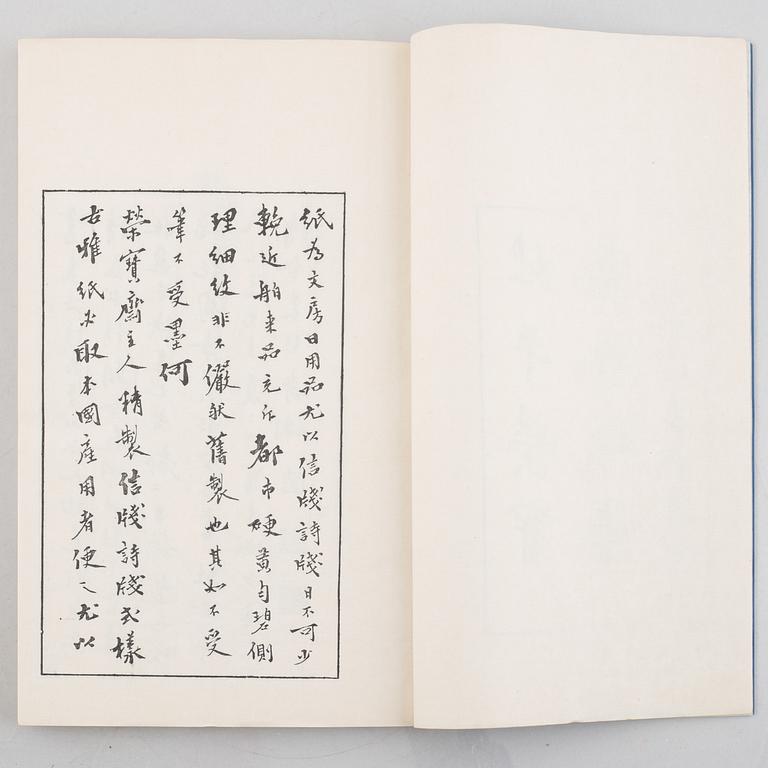 紙為文房日用品尤以信牋詩牋日不可少
輓近舶來品充斥都市硬黃勻碧側
理細紋非不儼然舊製也其如不受
筆不受墨何
榮寶齋主人精製信牋詩牋式樣
古雅紙必取本國產用者便之尤以